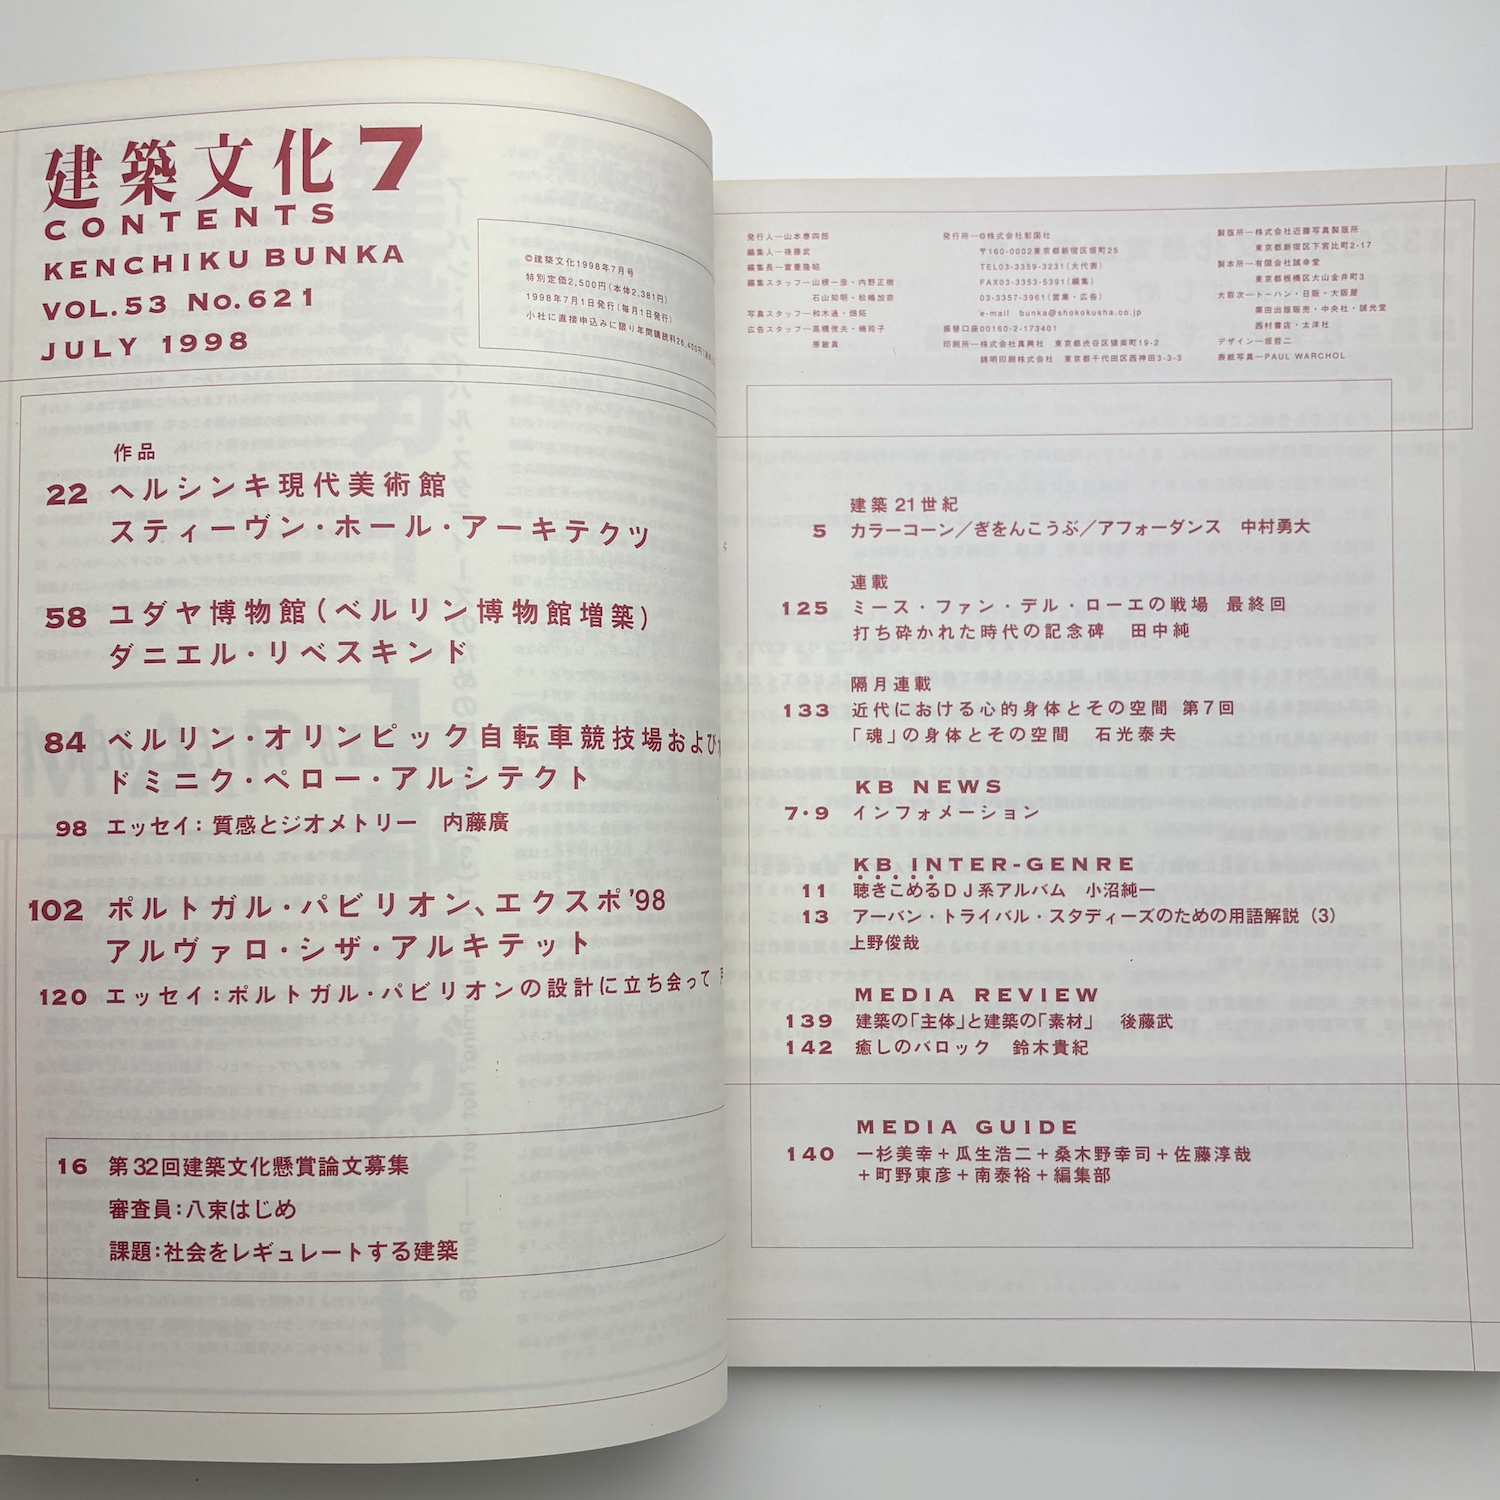 建築文化7
CONTENTS
KENCHIKU BUNKA
VOL.53 No.621
JULY 1998
©建築文化1998年7月号
特別定価2,500円(本体2,381円)
1998年7月1日発行(毎月1日発行)
小社に直接申込みに限り年間購読料26,400円
作品
22 ヘルシンキ現代美術館
スティーヴン・ホール・アーキテクツ
58 ユダヤ博物館(ベルリン博物館増築)
ダニエル・リベスキンド
84 ベルリン・オリンピック自転車競技場および
ドミニク・ペロー・アルシテクト
98 エッセイ:質感とジオメトリー 内藤廣
102 ポルトガル・パビリオン、エクスポ'98
アルヴァロ・シザ・アルキテット
120 エッセイ:ポルトガル・パビリオンの設計に立ち会って
16 第32回建築文化懸賞論文募集
審査員:八束はじめ
課題:社会をレギュレートする建築
発行人―山本泰四郎
編集人―後藤武
編集長―富重隆昭
編集スタッフ―山根一彦・内野正樹
石山知明・松嶋加奈
写真スタッフ―和木通・畑拓
広告スタッフ―高橋俊夫・楠苑子
原敏真
発行所―©株式会社彰国社
〒160-0002東京都新宿区坂町25
TEL03-3359-3231(大代表)
FAX03-3353-5391(編集)
03-3357-3961(営業・広告)
e-mail bunka@shokokusha.co.jp
振替口座00160-2-173401
印刷所―株式会社真興社 東京都渋谷区猿楽町19-2
錦明印刷株式会社 東京都千代田区西神田3-3-3
製版所―株式会社近藤写真製版所
東京都新宿区下宮比町2-17
製本所―有限会社誠幸堂
東京都板橋区大山金井町3
大取次―トーハン・日販・大阪屋
栗田出版販売・中央社・誠光堂
西村書店・太洋社
デザイン―坂哲二
表紙写真―PAUL WARCHOL
建築21世紀
5 カラーコーン/ぎをんこうぶ/アフォーダンス 中村勇大
連載
125 ミース・ファン・デル・ローエの戦場 最終回
打ち砕かれた時代の記念碑 田中純
隔月連載
133 近代における心的身体とその空間 第7回
「魂」の身体とその空間 石光泰夫
KB NEWS
7・9 インフォメーション
KB INTER-GENRE
11 聴きこめるDJ系アルバム 小沼純一
13 アーバン・トライバル・スタディーズのための用語解説(3)
上野俊哉
MEDIA REVIEW
139 建築の「主体」と建築の「素材」 後藤武
142 癒しのバロック 鈴木貴紀
MEDIA GUDE
140 一杉美幸+瓜生浩二+桑木野幸司+佐藤淳哉
+町野東彦+南泰裕+編集部